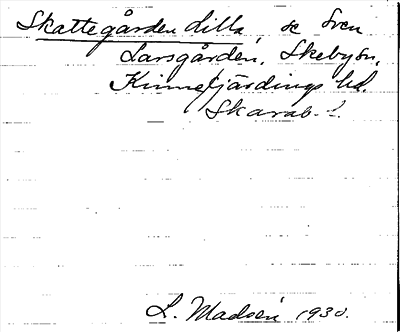 Skattegården Lilla, se Sven
Larsgården, Skeby sn,
Kinnefjärdings hd.
Skarab. l.
L. Madsén 1930.